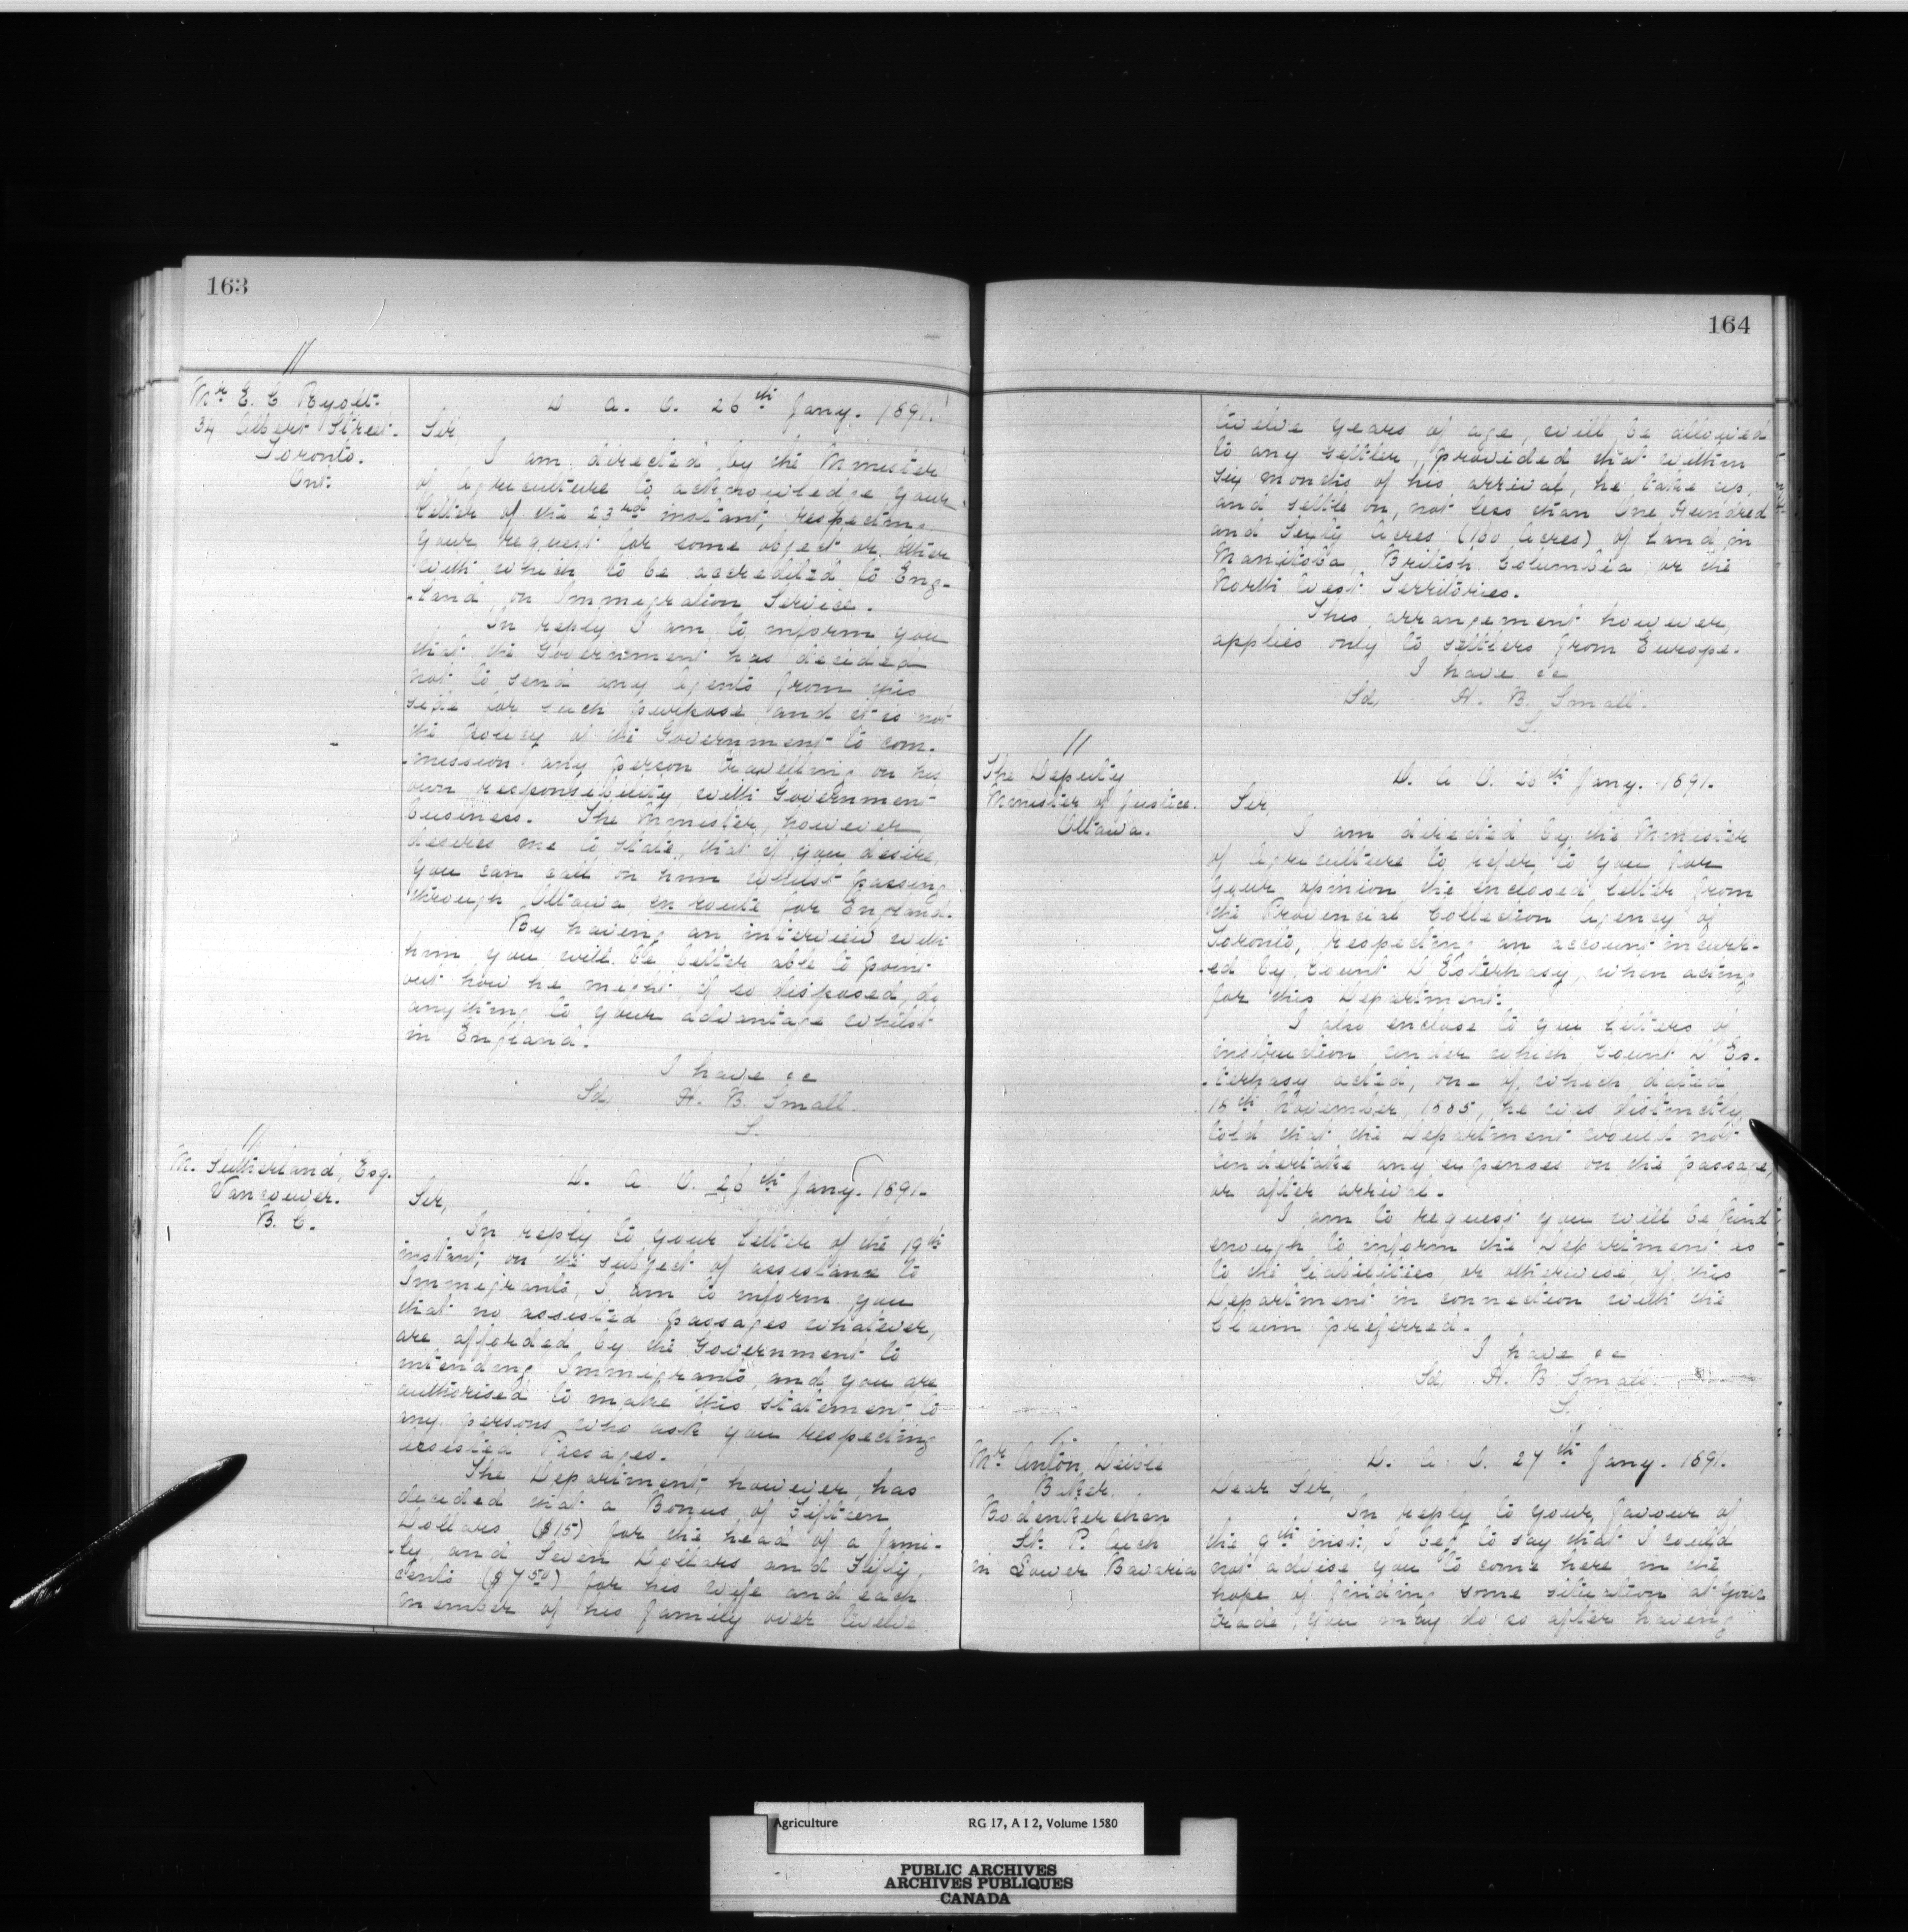 163
Mr E. C. Ryott.
34 Albert Street.
Toronto.
Ont.
D. A. O. 26th Jany. 1891.
Sir,
I am directed by the Minister
of Agriculture to acknowledge your
letter of the 23rd instant, respecting
your request for some object or other
with which to be accredited to Eng-
-land, on Immigration Service.
In reply I am to inform you
that the Government has decided
not to send any Agents from this
side for such purpose, and it is not
the policy of the Government to com-
-mission any person travelling on his
own responsibility, with Government
business. The Minister, however
desires me to state, that if you desire,
you can call on him whilst passing
through Ottawa, en route for England.
By having an interview with
him you will be better able to point
out how he might, if so disposed, do
anything to your advantage whilst
in England.
I have &c
Sd, H. B. Small.
S.
M. Sutherland, Esq.
Vancouver.
B. C.
D. A. O. 26th Jany. 1891.
Sir,
In reply to your letter of the 19th
instant, on the subject of assistance to
Immigrants, I am to inform you
that no assisted passages whatever,
are afforded by the Government to
intending Immigrants, and you are
authorised to make this statement to
any persons who ask you respecting
assisted Passages.
The Department, however, has
decided that a Bonus of Fifteen
Dollars ($15) for the head of a fami-
-ly, and Seven Dollars and Fifty
cents ($7.50) for his wife and each
member of his family over twelve
164
twelve years of age, will be allowed
to any settler, provided that within
six months of his arrival, he take up,
and settle on, not less than One Hundred
and Sixty Acres (160 Acres) of Land in
Manitoba, British Columbia or the
North West Territories.
This arrangement however,
applies only to settlers from Europe.
I have &c
Sd, H. B. Small.
S.
The Deputy
Minister of Justice.
Ottawa.
D. A. O. 26th Jany. 1891.
Sir,
I am directed by the Minister
of Agriculture to refer to you for
your opinion the enclosed letter from
the Provincial Collection Agency of
Toronto, respecting an account incurr-
-ed by Count D'Esterhasy, when acting
for this Department.
I also enclose to you letters of
instruction under which Count D'Es-
-terhasy acted, one of which, dated
18th November, 1885, he was distinctly
told that the Department would not
undertake any expenses on the passage,
or after arrival.
I am to request you will be kind
enough to inform the Department as
to the liabilities, or otherwise, of this
Department in connection with the
Claim preferred.
I have &c
Sd, H. B Small.
S.
Mr Anton Deible
Baker.
Bodenkerchen
St. P.
in Lower Bavaria
D. A. O. 27th Jany. 1891.
Dear Sir,
In reply to your favour of
the 9th inst, I beg to say that I could
not advise you to come here in the
hope of finding some situation at your
trade, you may do so after having
Agriculture RG 17, A I 2, Volume 1580
PUBLIC ARCHIVES
ARCHIVES PUBLIQUES
CANADA